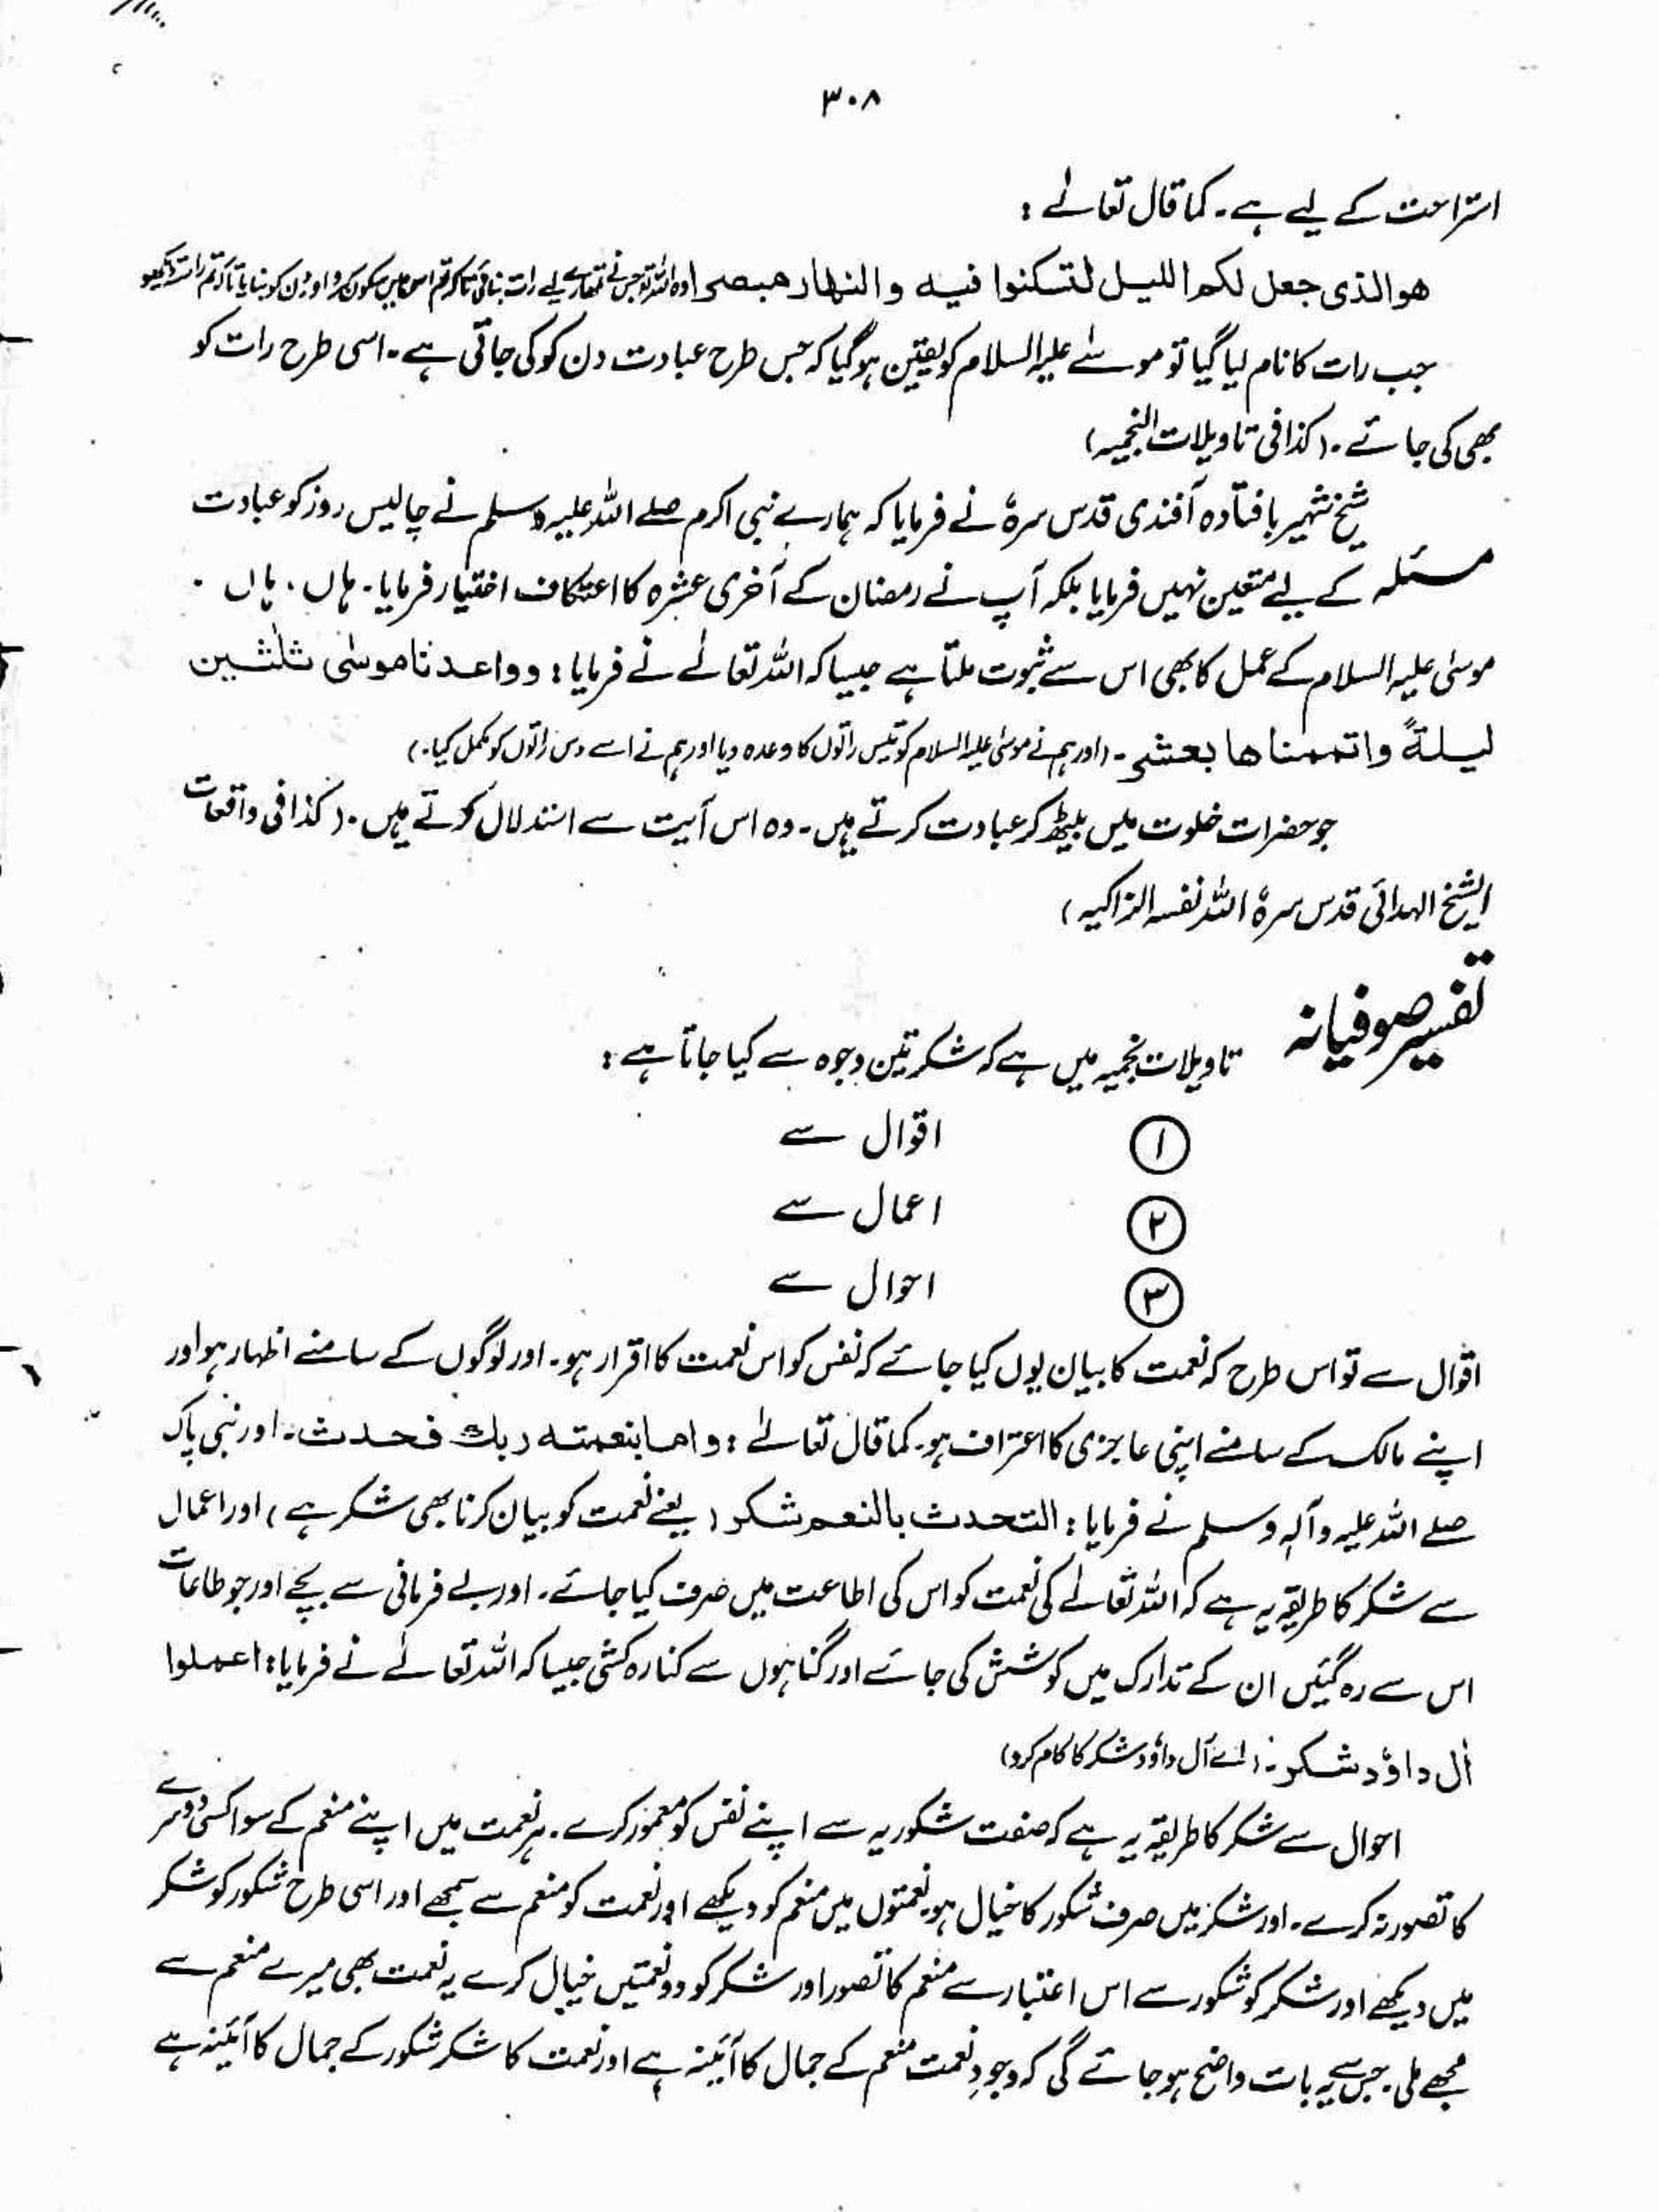 ۳۰۸
استراحت کے لیے ہے۔ کما قال تعالےٰ :
ھوالذی جعل لکم اللیل لتسکنوا فیہ والنھار مبصرا (وہ اللہ تو جس نے تمھارے لیے رات بنائی تاکہ تم اس میں سکون کرو اور دن کو بنایا تاکہ تم راستہ دیکھو
جب رات کا نام لیا گیا تو موسےٰ علیہ السلام کو یقین ہو گیا کہ جس طرح عبادت دن کو کی جاتی ہے۔ اسی طرح رات کو
بھی کی جائے۔ (کذا فی تاویلات النجمیہ)
شیخ شہیر بافتادہ آفندی قدس سرہٗ نے فرمایا کہ ہمارے نبی اکرم صلے اللہ علیہ وسلم نے چالیس روز کو عبادت
مسئلہ کے لیے متعین نہیں فرمایا بلکہ آپ نے رمضان کے آخری عشرہ کا اعتکاف اختیار فرمایا۔ ہاں، ہاں ۔
موسیٰ علیہ السلام کے عمل کا بھی اس سے ثبوت ملتا ہے جیسا کہ اللہ تعالےٰ نے فرمایا : وواعدنا موسٰی ثلٰثین
لیلۃً واتممناھا بعشر۔ (اور ہم نے موسیٰ علیہ السلام کو تیس راتوں کا وعدہ دیا اور ہم نے اسے دس راتوں کو مکمل کیا۔)
جو حضرات خلوت میں بیٹھ کر عبادت کرتے ہیں۔ وہ اس آیت سے استدلال کرتے ہیں۔ (کذا فی واقعات
الشیخ الہدائی قدس سرہٗ اللہ نفسہ الزاکیہ)
تفسیر صوفیانہ تاویلات نجمیہ میں ہے کہ شکر تین وجوہ سے کیا جاتا ہے :
۱ اقوال سے
۲ اعمال سے
۳ احوال سے
اقوال سے تو اس طرح کہ نعمت کا بیان یوں کیا جائے کہ نفس کو اس نعمت کا اقرار ہو۔ اور لوگوں کے سامنے اظہار ہو اور
اپنے مالک کے سامنے اپنی عاجزی کا اعتراف ہو۔ کما قال تعالےٰ : واما بنعمتہ ربک فحدث۔ اور نبی پاک
صلے اللہ علیہ وآلہٖ وسلم نے فرمایا : التحدث بالنعم شکر (یعنے نعمت کو بیان کرنا بھی شکر ہے) اور اعمال
سے شکر کا طریقہ یہ ہے کہ اللہ تعالےٰ کی نعمت کو اس کی اطاعت میں صرف کیا جائے۔ اور بے فرمانی سے بچے اور جو طاعات
اس سے رہ گئیں ان کے تدارک میں کوشش کی جائے اور گناہوں سے کنارہ کشی جیسا کہ اللہ تعالےٰ نے فرمایا : اعملوا
اٰل داوٗد شکر۔ (اے آل داؤد شکر کا کام کرو)
احوال سے شکر کا طریقہ یہ ہے کہ صفت شکوریہ سے اپنے نفس کو معمور کرے۔ ہر نعمت میں اپنے منعم کے سوا کسی دوسرے
کا تصور نہ کرے۔ اور شکر میں صرف شکور کا خیال ہو۔ نعمتوں میں منعم کو دیکھے اور نعمت کو منعم سے سمجھے اور اسی طرح شکور کو شکر
میں دیکھے اور شکر کو شکور سے اس اعتبار سے منعم کا تصور اور شکر کو دو نعمتیں خیال کرے یہ نعمت بھی میرے منعم سے
مجھے ملی۔ جس سے یہ بات واضح ہو جائے گی کہ وجودِ نعمت منعم کے جمال کا آئینہ ہے اور نعمت کا شکر شکور کے جمال کا آئینہ ہے